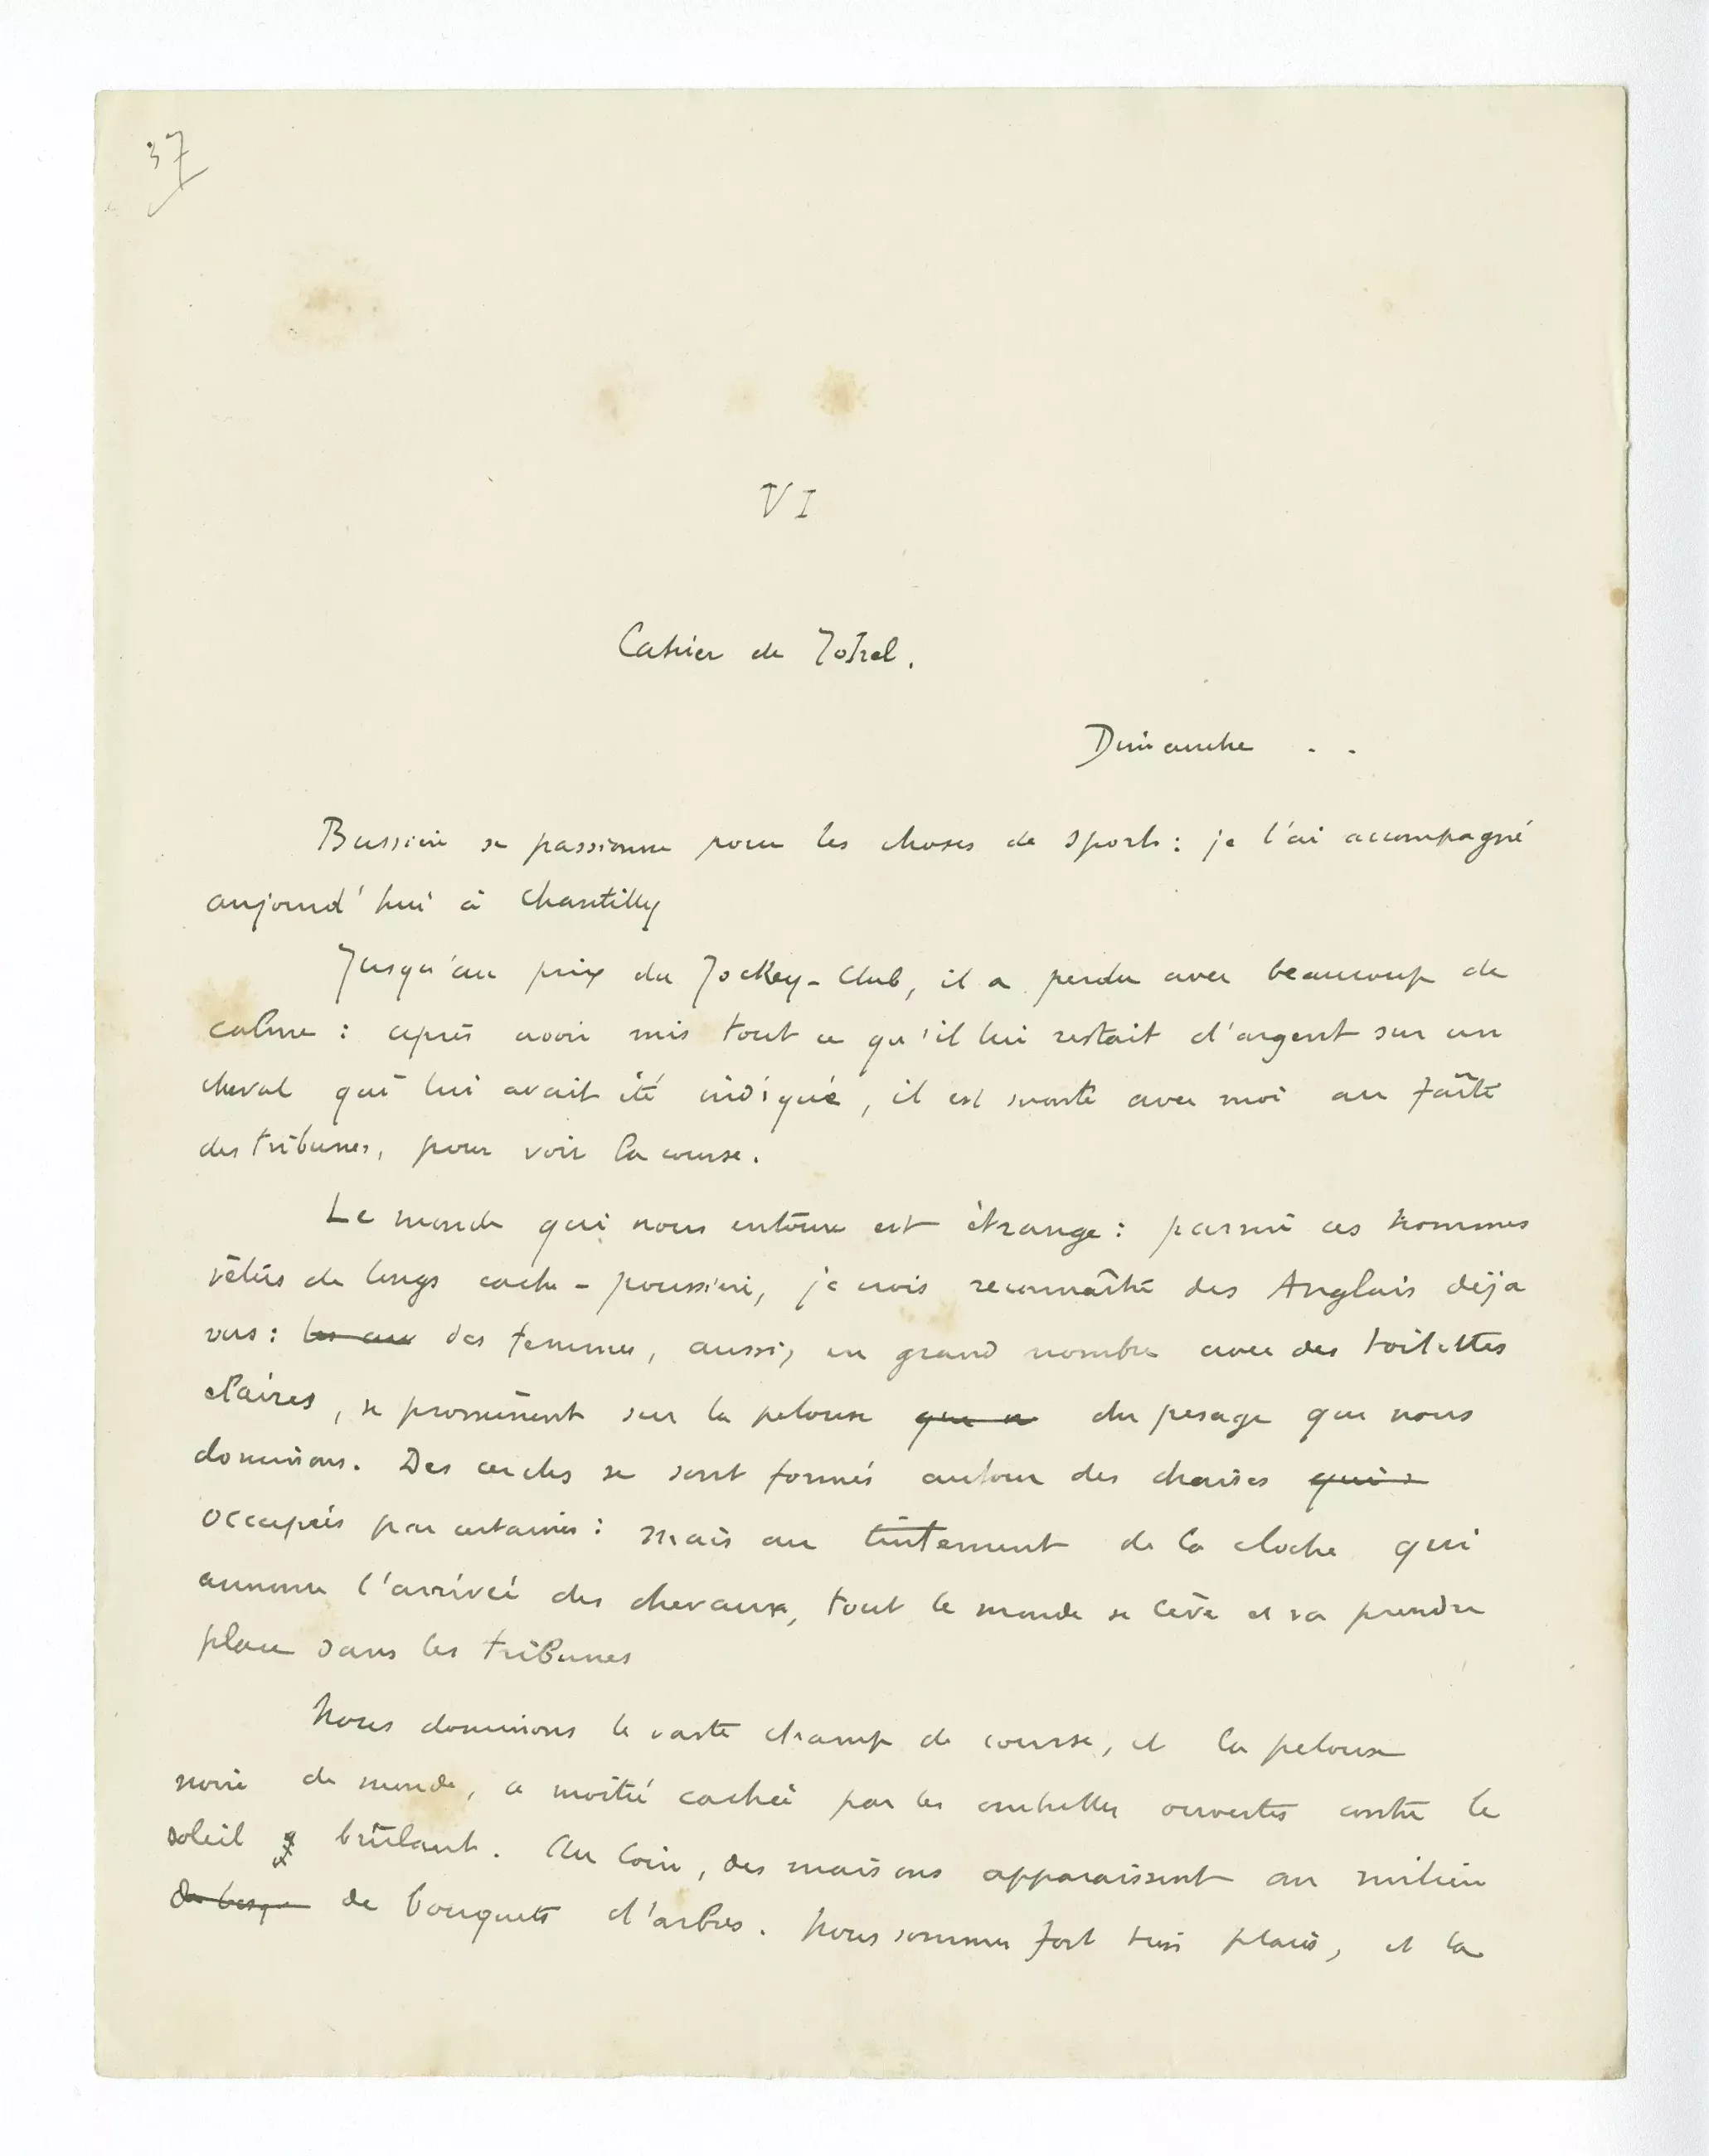 37
VI
Cahier de Johel.
Dimanche . .
Bussière se passionne pour les choses de sports : je l'ai accompagné
aujourd'hui à Chantilly
Jusqu'au prix du Jockey-Club, il a perdu avec beaucoup de
calme : après avoir mis tout ce qu'il lui restait d'argent sur un
cheval qui lui avait été indiqué, il est monté avec moi au faîte
des tribunes, pour voir la course.
Le monde qui nous entoure est étrange : parmi ces hommes
vêtus de longs cache-poussière, je crois reconnaître des Anglais déjà
vus : des femmes, aussi, en grand nombre avec des toilettes
claires, se promènent sur la pelouse que n du pesage que nous
dominons. Des cercles se sont formés autour des chaises qui s
occupées par certaines : mais au tintement de la cloche qui
annonce l'arrivée des chevaux, tout le monde se lève et va prendre
place dans les tribunes
Nous dominons le vaste champ de course, et la pelouse
noire de monde, a moitié cachée par les ombrelles ouvertes contre le
soleil brûlant. Au loin, des maisons apparaissent au milieu
de bouquets d'arbres. Nous sommes fort bien placés, et la